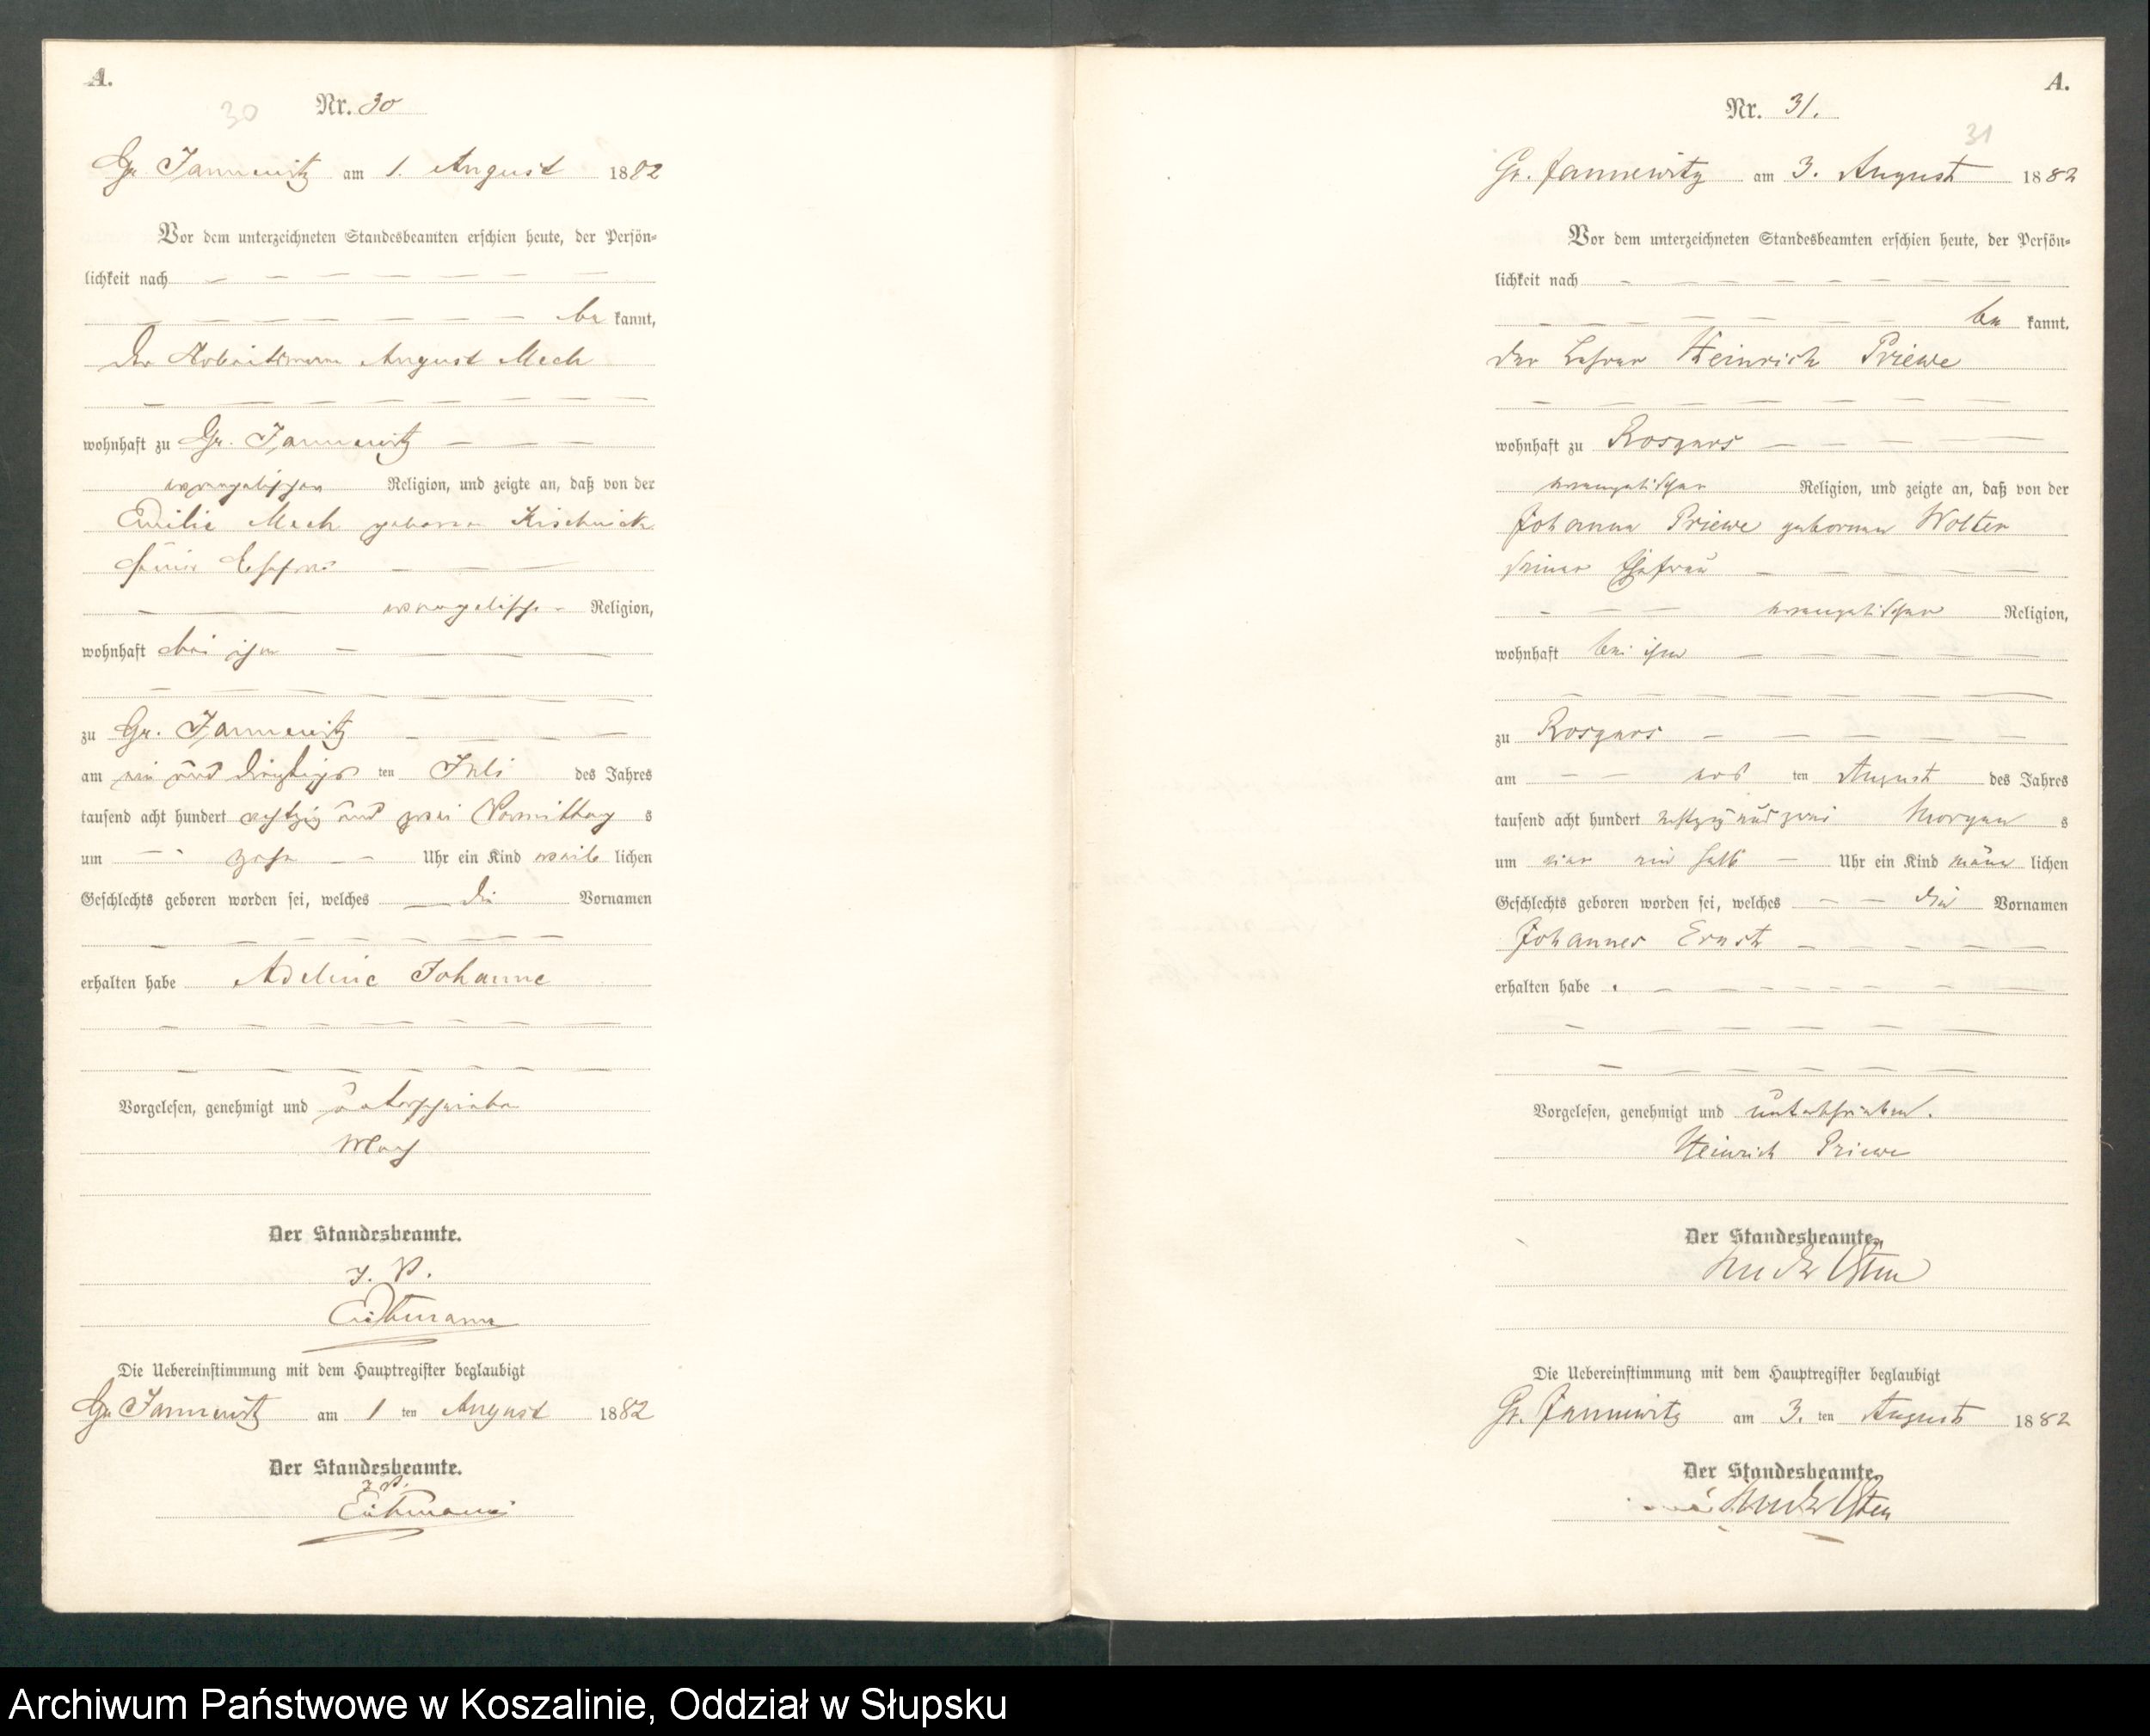 A.
30
Nr. 30
Gr. Jannewitz am 1. August 1882
Vor dem unterzeichneten Standesbeamten erschien heute, der Persön-
lichkeit nach
be kannt,
der Arbeitsmann August Mech
wohnhaft zu Gr. Jannewitz
evangelischer Religion, und zeigte an, daß von der
Emilie Mech geborene Kischnick
seiner Ehefrau
evangelischer Religion,
wohnhaft bei ihm
zu Gr. Jannewitz
am ein und dreißigs ten Juli des Jahres
tausend acht hundert achtzig und zwei Vormittag s
um zehn Uhr ein Kind weib lichen
Geschlechts geboren worden sei, welches die Vornamen
erhalten habe Adeline Johanne
Vorgelesen, genehmigt und unterschrieben
Mech
Der Standesbeamte.
J. V.
Die Uebereinstimmung mit dem Hauptregister beglaubigt
Gr. Jannewitz am 1 ten August 1882
Der Standesbeamte.
J. V.
A.
Nr. 31.
31
Gr. Jannewitz am 3. August 1882
Vor dem unterzeichneten Standesbeamten erschien heute, der Persön-
lichkeit nach
be kannt.
der Lehrer Heinrich Priewe
wohnhaft zu Rosgars
evangelischer Religion, und zeigte an, daß von der
Johanna Priewe geborenen Wolter
seiner Ehefrau
evangelischer Religion,
wohnhaft bei ihm
zu Rosgars
am ers ten August des Jahres
tausend acht hundert achtzig und zwei Morgen s
um vier ein halb Uhr ein Kind männ lichen
Geschlechts geboren worden sei, welches die Vornamen
Johannes Ernst
erhalten habe
Vorgelesen, genehmigt und unterschrieben.
Heinrich Priewe
Der Standesbeamte.
Die Uebereinstimmung mit dem Hauptregister beglaubigt
Gr. Jannewitz am 3. ten August 1882
Der Standesbeamte.
Archiwum Państwowe w Koszalinie, Oddział w Słupsku